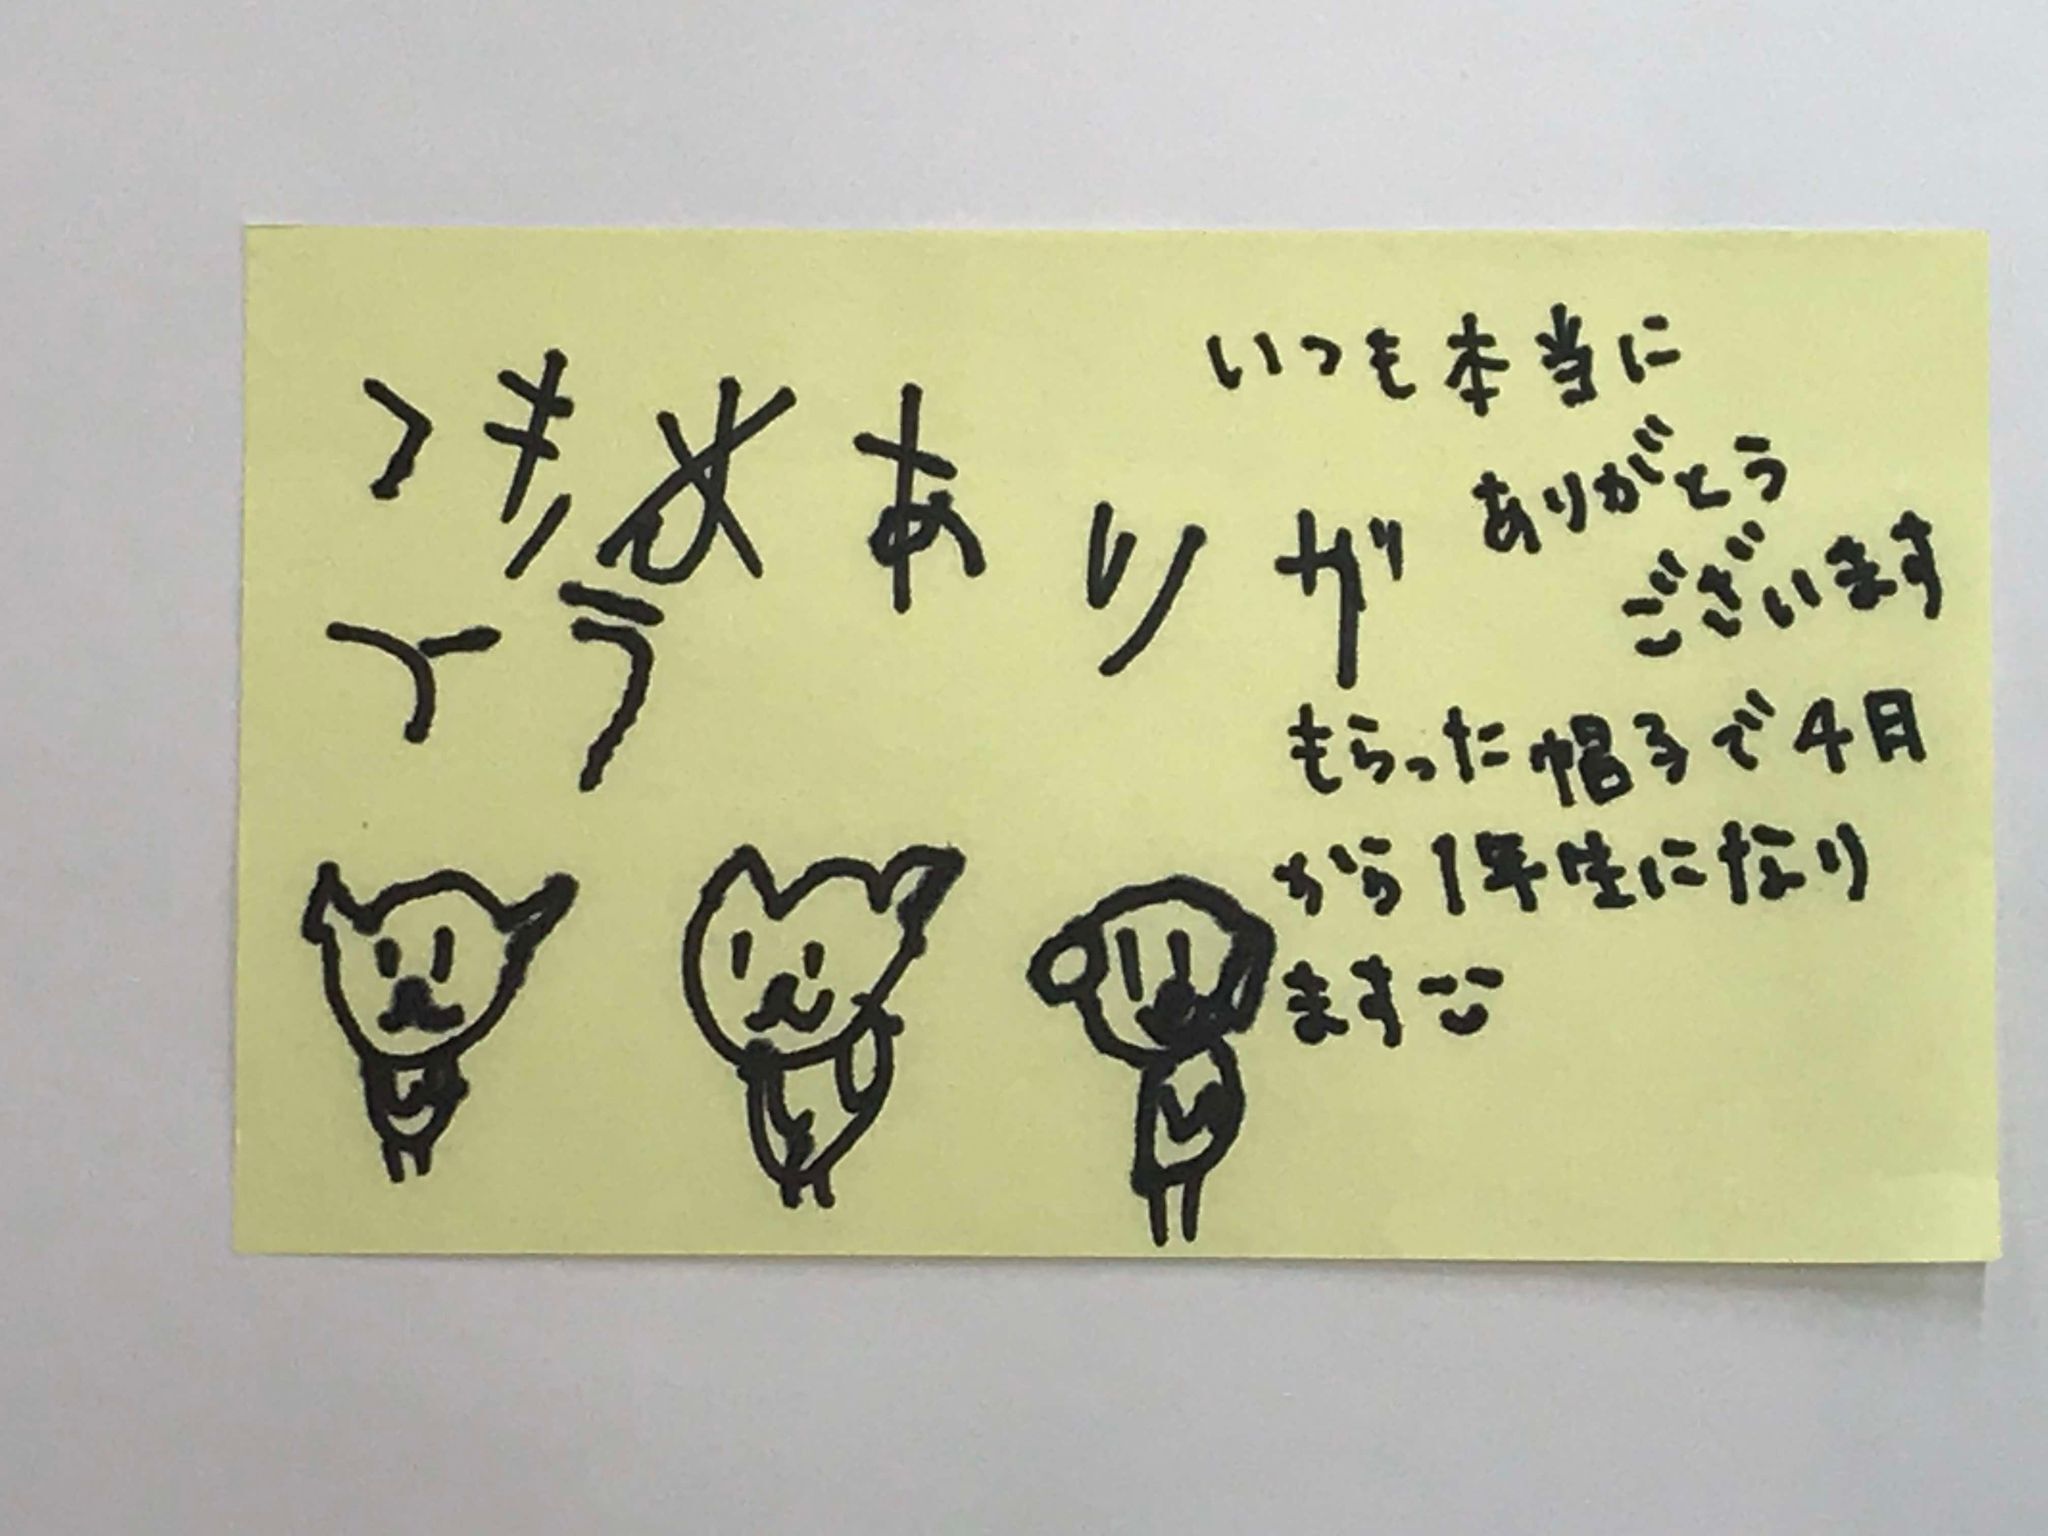 ありが
とう
いつも本当に
ありがとう
ございます
もらった帽子で4月
から1年生になり
ます